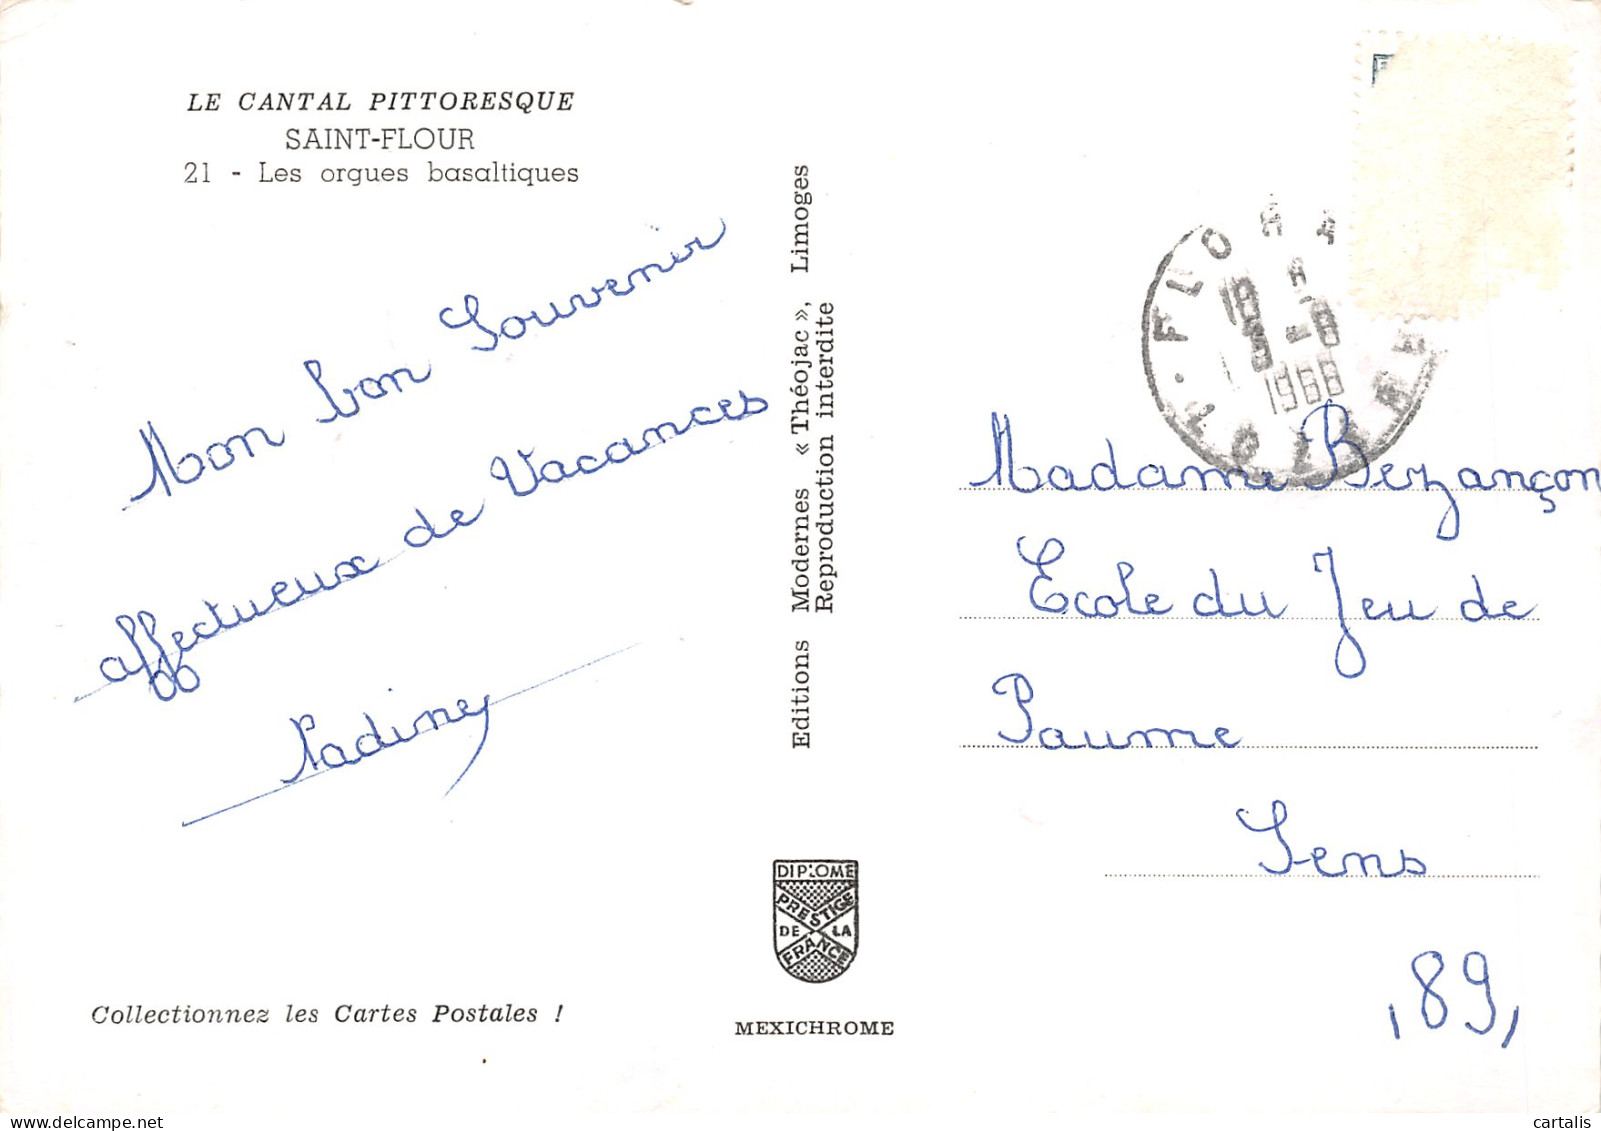 LE CANTAL PITTORESQUE
SAINT-FLOUR
21 - Les orgues basaltiques
Mon bon Souvenir
affectueux de Vacances
Nadine
Collectionnez les Cartes Postales !
Editions Modernes « Théojac », Limoges
Reproduction interdite
DIPLOME
PRESTIGE
DE LA
FRANCE
MEXICHROME
1968
Madame Bezançon
Ecole du Jeu de
Paume
Sens
,89,
cartalis